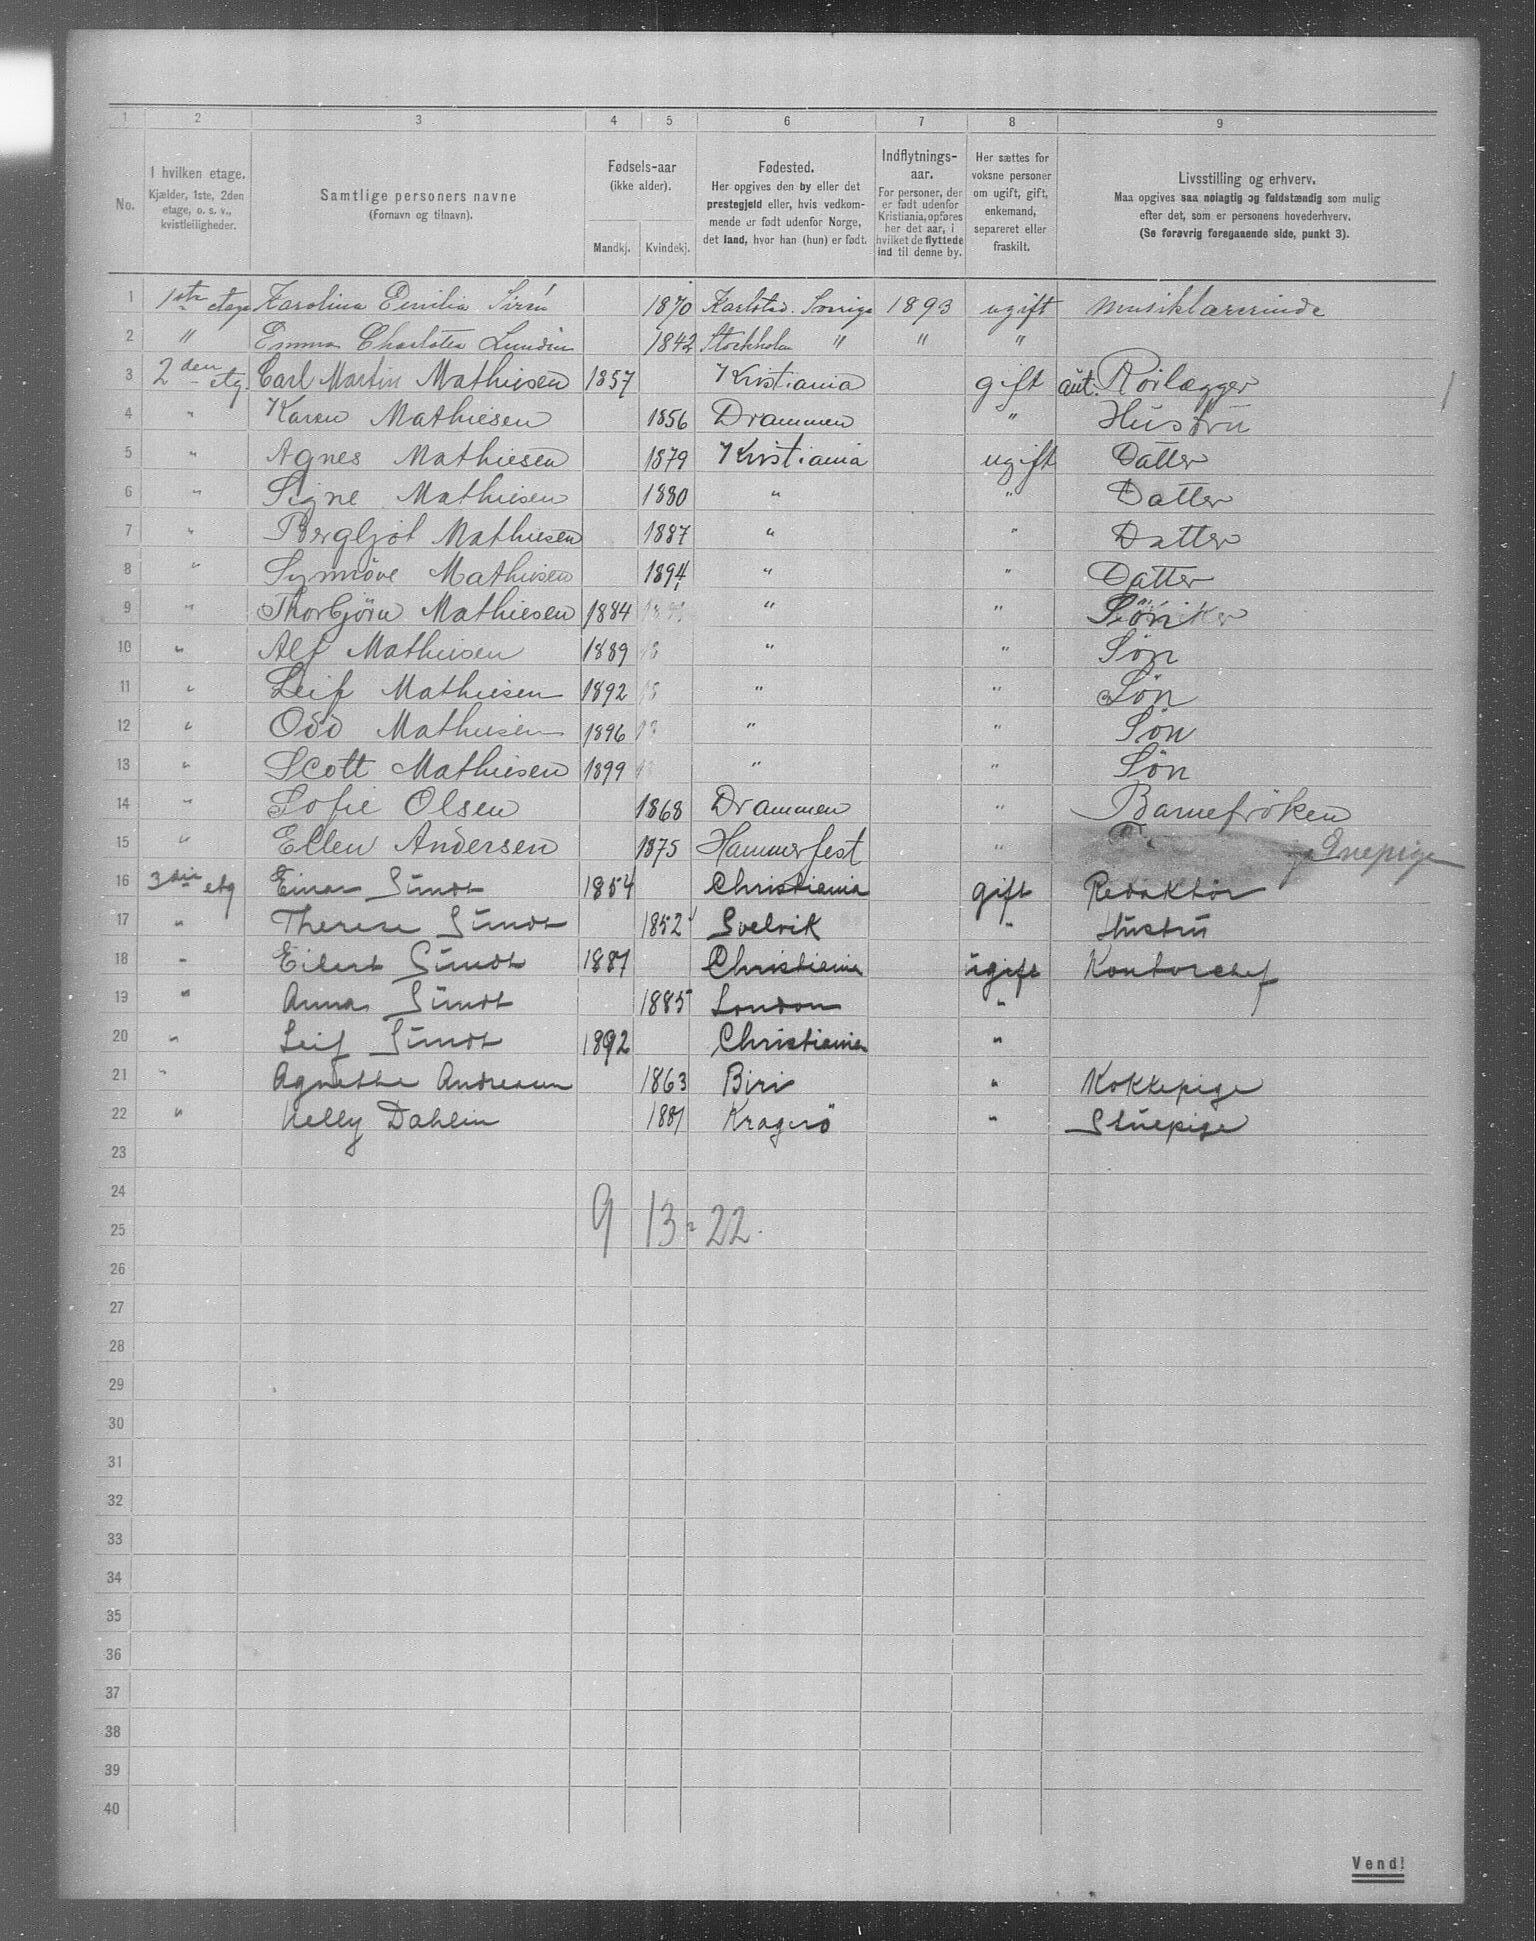 1 2 3 4 5 6 7 8 9
No.
I hvilken etage.
Kjælder, 1ste, 2den
etage, o. s. v.,
kvistleiligheder.
Samtlige personers navne
(Fornavn og tilnavn).
Fødsels-aar
(ikke alder).
Mandkj. Kvindekj.
Fødested.
Her opgives den by eller det
prestegjeld eller, hvis vedkom-
mende er født udenfor Norge,
det land, hvor han (hun) er født.
Indflytnings-
aar.
For personer, der
er født udenfor
Kristiania, opføres
her det aar, i
hvilket de flyttede
ind til denne by.
Her sættes for
voksne personer
om ugift, gift,
enkemand,
separeret eller
fraskilt.
Livsstilling og erhverv.
Maa opgives saa nøiagtig og fuldstændig som mulig
efter det, som er personens hovederhverv.
(Se forøvrig foregaaende side, punkt 3).
1 1ste etage Karolina Emilia Sirén 1870 Karlstad. Sverige 1893 ugift Musiklærerinde
2 " Emma Charlotta Lundin 1842 Stockholm " " "
3 2den etg. Carl Martin Mathiesen 1857 Kristiania gift aut. Rörlægger
4 " Karen Mathiesen 1856 Drammen " Hustru
5 " Agnes Mathiesen 1879 Kristiania ugift Datter
6 " Signe Mathiesen 1880 " " Datter
7 " Bergljot Mathiesen 1887 " " Datter
8 " Synnöve Mathiesen 1894 " " Datter
9 " Thorbjörn Mathiesen 1884 " " Sön
10 " Alf Mathiesen 1889 " " Sön
11 " Leif Mathiesen 1892 " " Sön
12 " Odd Mathiesen 1896 " " Sön
13 " Scott Mathiesen 1899 " " Sön
14 " Sofie Olsen 1868 Drammen " Barnefröken
15 " Ellen Andersen 1875 Hammerfest "
16 3die etg Einar Sundt 1854 Christiania gift Redaktör
17 " Therese Sundt 1852 Svelvik " Hustru
18 " Eilert Sundt 1887 Christiania ugift Kontorchef
19 " Anna Sundt 1885 London "
20 " Leif Sundt 1892 Christiania "
21 " Agnethe Andresen 1863 Biri " Kokkepige
22 " Nelly Dahlin 1881 Kragerö " Stuepige
23
24
9 13 = 22.
25
26
27
28
29
30
31
32
33
34
35
36
37
38
39
40
Vend!